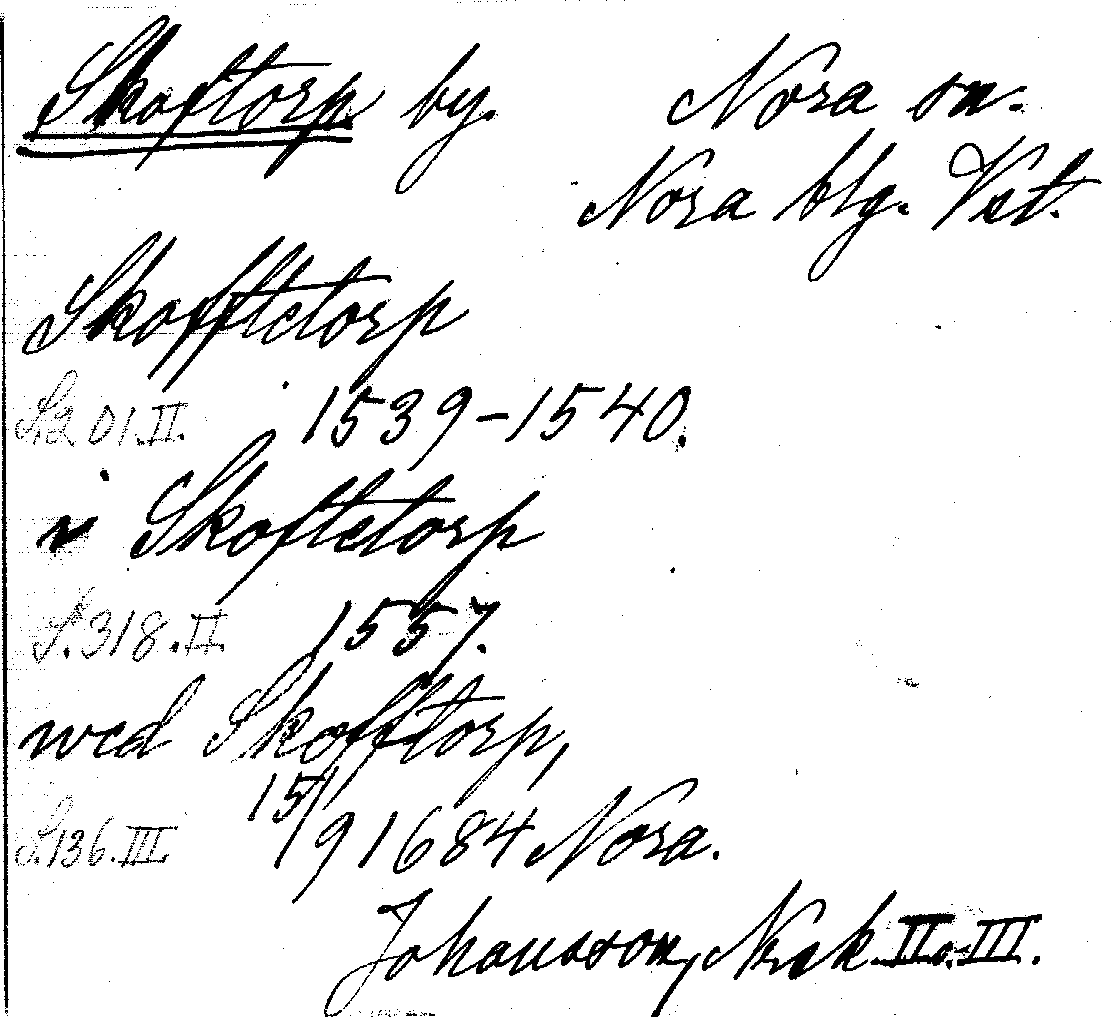 Skoftorp by. Nora sn.
Nora blg. Vst.
Skofftetorp
S.201.II. 1539-1540.
i Skoftetorp
S.318.II. 1557.
wed Skofftorp,
S.136.III. 15/9 1684 Nora.
Johansson, Norak. II o. III.